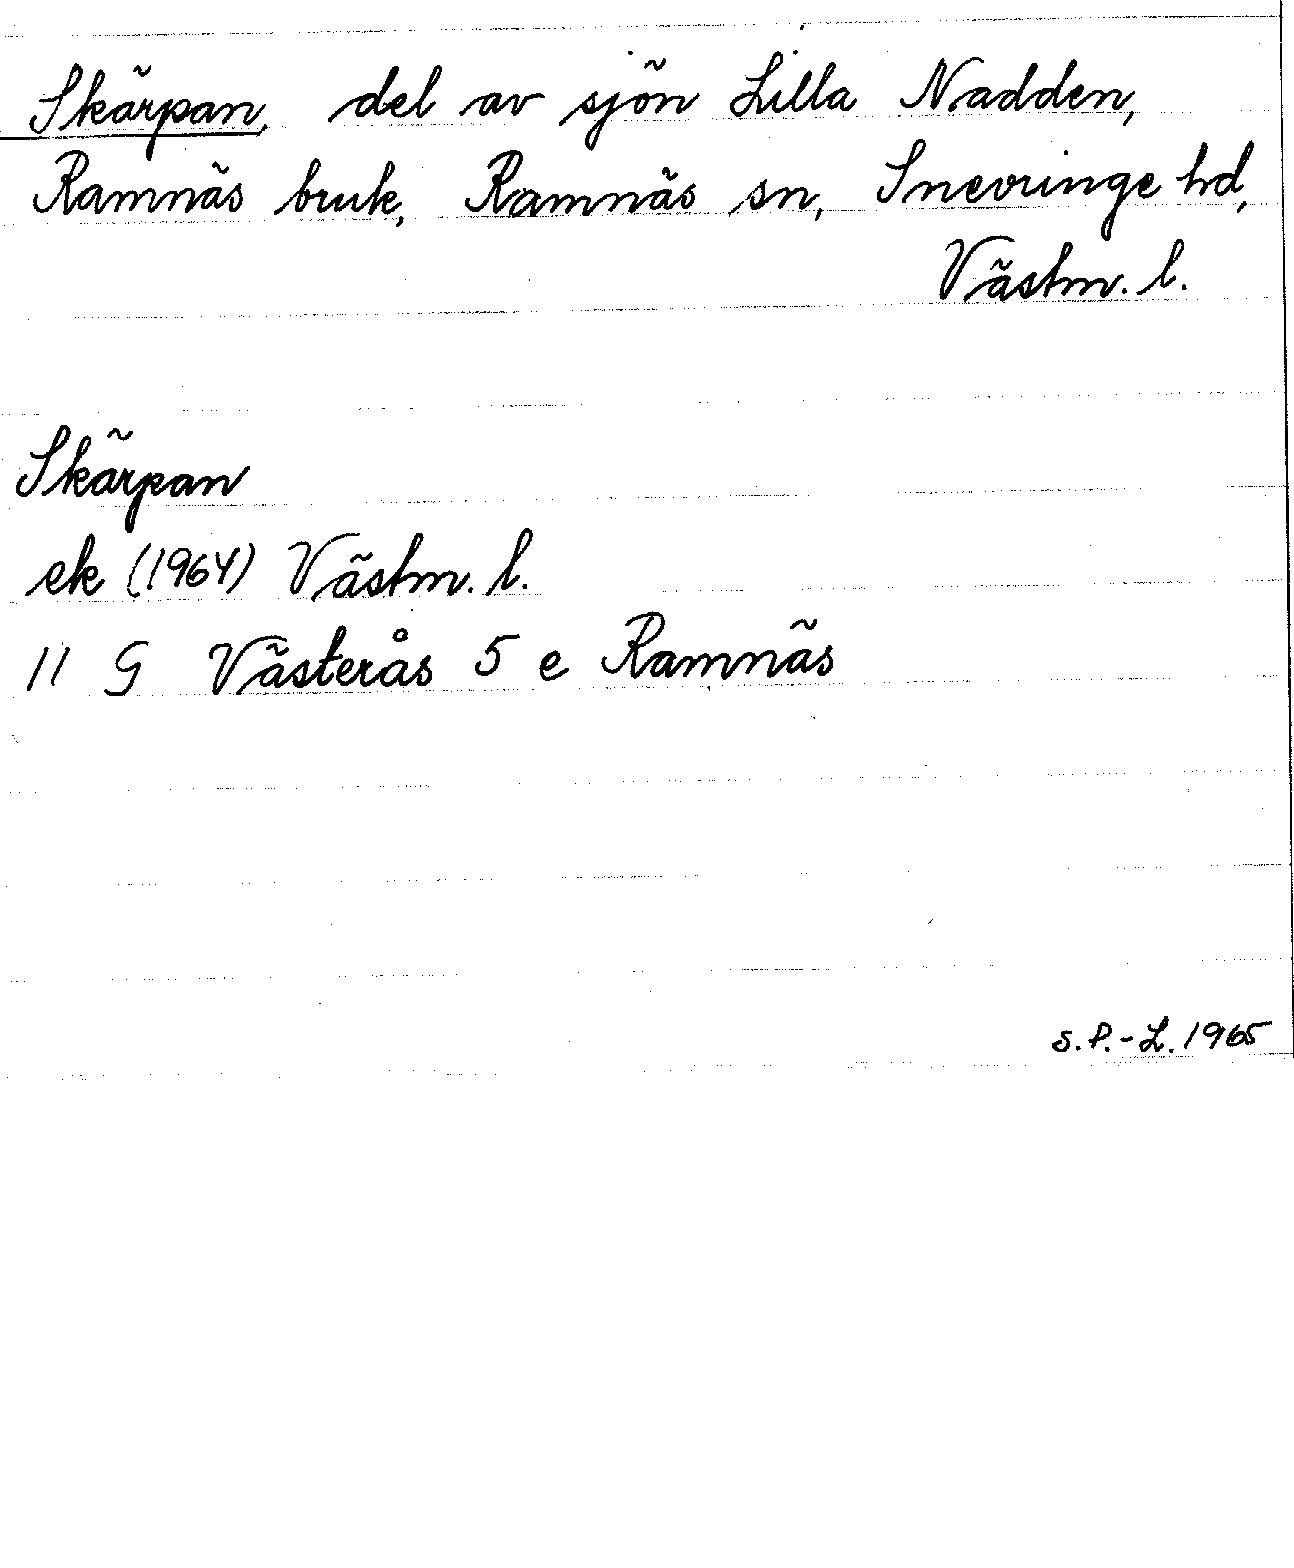 Skärpan, del av sjön Lilla Nadden,
Ramnäs bruk, Ramnäs sn, Snevringe hd,
Västm. l.
Skärpan
ek (1964) Västm. l.
11 G Västerås 5 e Ramnäs
S.P.-L. 1965